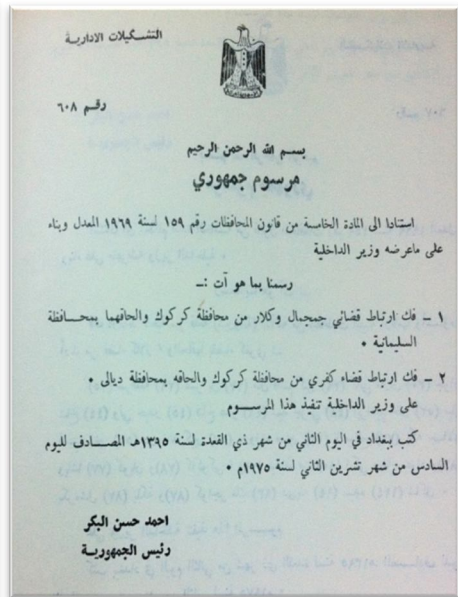 التشكيلات الادارية
رقم ٦٠٨
بسم الله الرحمن الرحيم
مرسوم جمهوري
استنادا الى المادة الخامسة من قانون المحافظات رقم ١٥٩ لسنة ١٩٦٩ المعدل وبناء
على ماعرضه وزير الداخلية
رسمنا بما هو آت :ـ
١ ـ فك ارتباط قضائي جمجمال وكلار من محافظة كركوك والحاقهما بمحافظة
السليمانية •
٢ ـ فك ارتباط قضاء كفري من محافظة كركوك والحاقه بمحافظة ديالى •
على وزير الداخلية تنفيذ هذا المرسوم
كتب ببغداد في اليوم الثاني من شهر ذي القعدة لسنة ١٣٩٥هـ المصادف لليوم
السادس من شهر تشرين الثاني لسنة ١٩٧٥م •
احمد حسن البكر
رئيس الجمهورية